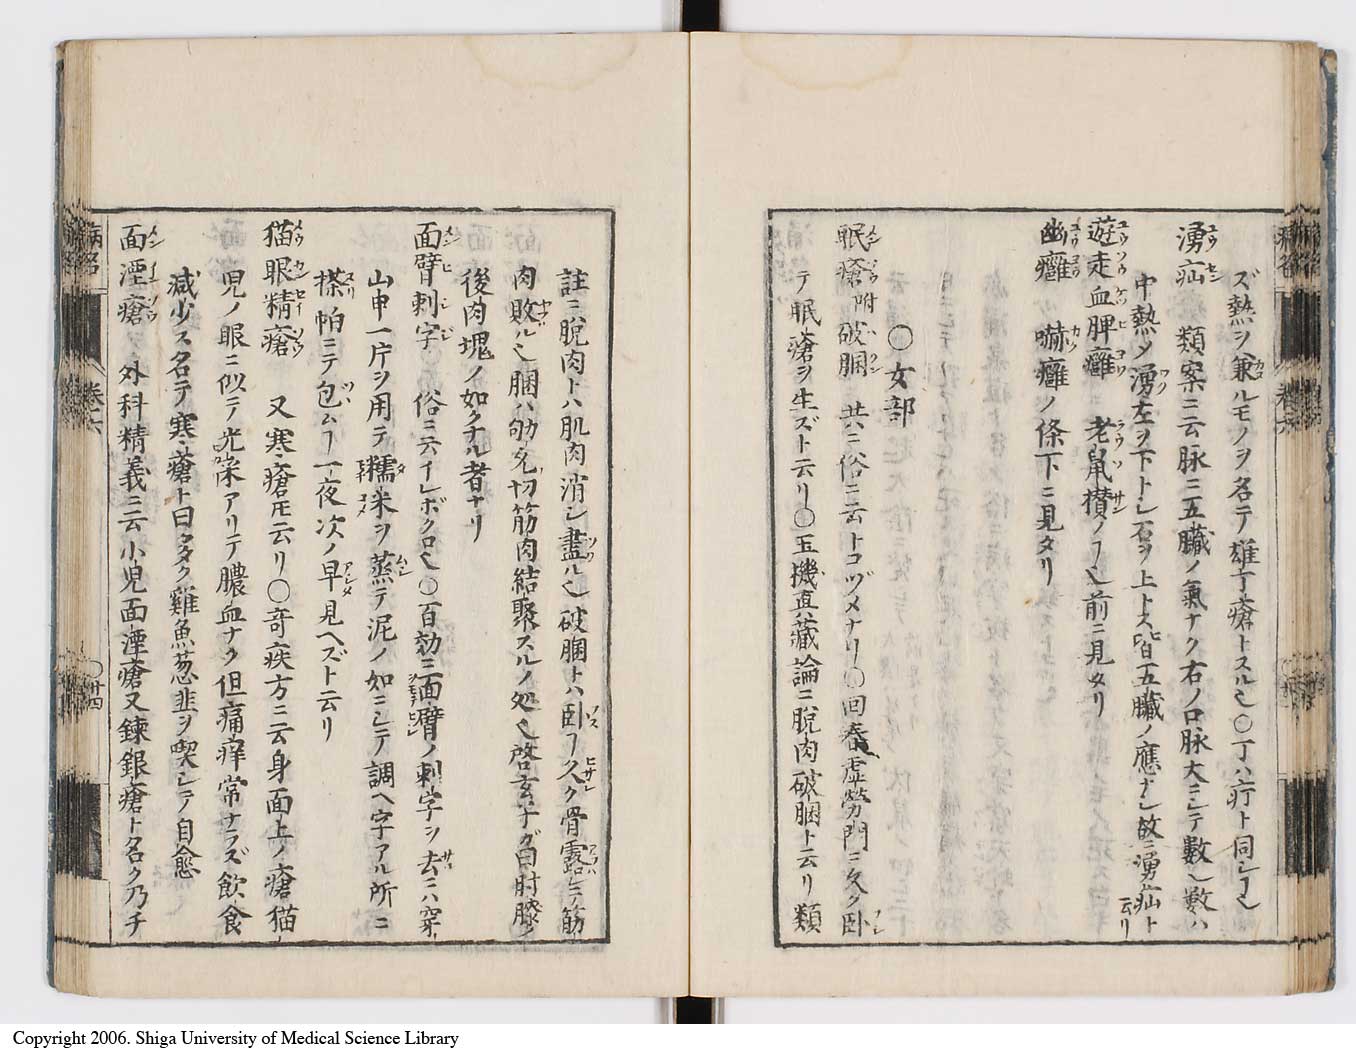 ズ熱ヲ兼ルモノヲ名テ雄丁瘡トスル也〇丁ハ疔ト同シ
湧疝 類案ニ云脉ニ五臓ノ氣ナク右ノ口脉大ニシテ數也數ハ
中熱メ湧左ヲ下トシ右ヲ上トス皆五臓ノ應ナシ故ニ湧疝ト云リ
遊走血脾癰 老鼠攅ノ前ニ見タリ
幽癰 嚇癰ノ條下ニ見タリ
〇女部
眠瘡附破䐃 共ニ俗ニ云トコヅメナリ〇回春虚勞門ニ久ク卧
テ眠瘡ヲ生ズト云リ〇玉機真藏論ニ脱肉破䐃ト云リ類
註ニ脱肉トハ肌肉消シ盡ル也破䐃トハ卧コ久ク骨露シテ筋
肉敗ル也䐃ハ筋肉結聚スルノ処也啓玄子ガ曰肘膝ノ
後肉塊ノ如クナル者ナリ
面臂刺字 俗ニ云イレボクロ也〇百効ニ面臂ノ刺字ヲ去ニハ穿
山甲一片ヲ用テ糯米ヲ蒸テ泥ノ如ニシテ調ヘ字アル所ニ
搽帕ニテ包ムコ一夜次ノ早見ヘズト云リ
猫眼精瘡 又寒瘡トモ云リ〇竒疾方ニ云身面上ノ瘡猫
児ノ眼ニ似テ光アリテ膿血ナク但痛痒常ナラズ飲食
減少ス名テ寒瘡ト曰タク雞魚葱韭ヲ喫シテ自愈
面湮瘡 外科精義ニ云小児面湮瘡又錬銀瘡ト名ク乃チ
病名
巻六
〇廿四
Copyright 2006. Shiga University of Medical Science Library